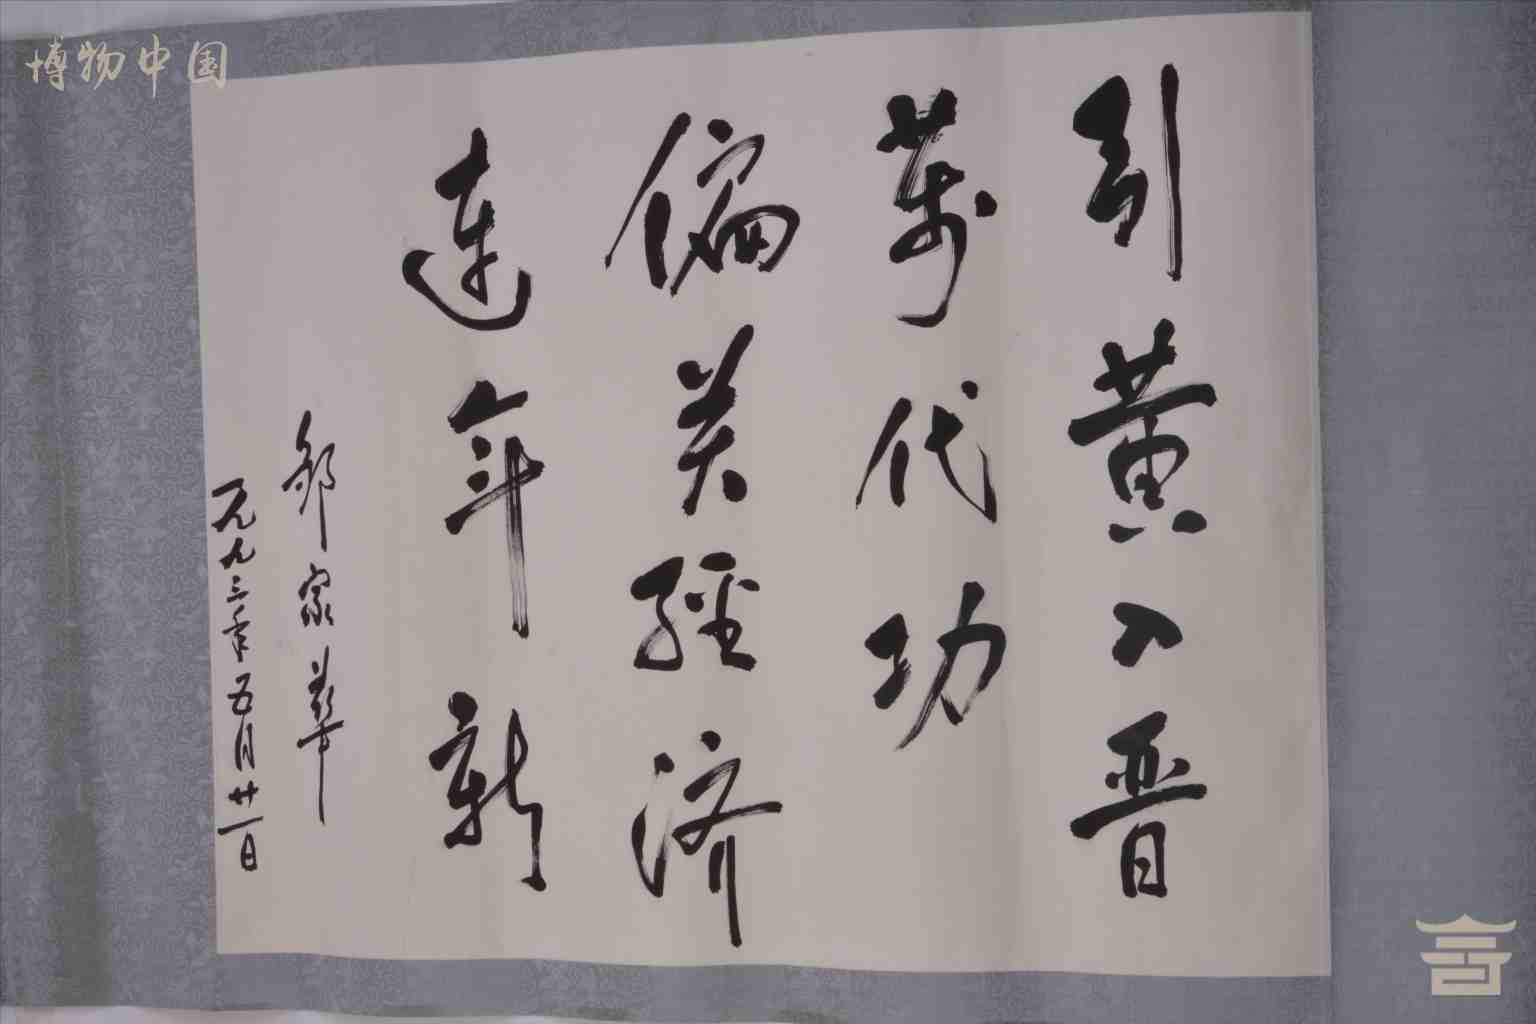 博物中国
引黄入晋
万代功
偏关经济
连年新
邹家华
一九九三年五月廿一日